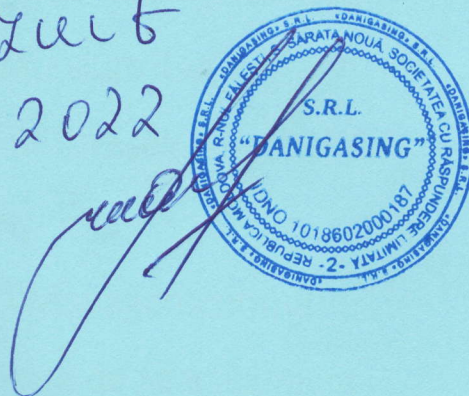 2022
«DANIGASING» S.R.L. «DANIGASING» S.R.L. «DANIGASING» S.R.L. «DANIGASING» S.R.L.
REPUBLICA MOLDOVA. R-NUL FĂLEȘTI, S. SĂRATA NOUĂ. SOCIETATEA CU RĂSPUNDERE LIMITATĂ
-2-
S.R.L.
"DANIGASING"
IDNO 1018602000187